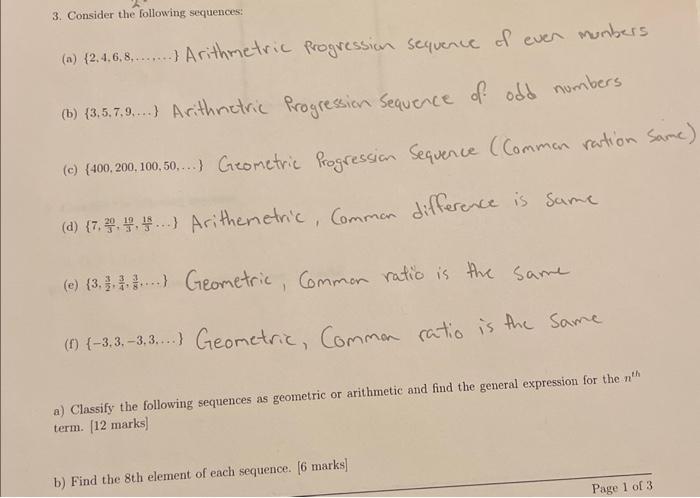 3. Consider the following sequences:
(a) {2, 4, 6, 8, .......} Arithmetric Progression sequence of even munbers
(b) {3, 5, 7, 9, ....} Arithmetric Progression Sequence of odd numbers
(c) {400, 200, 100, 50, ...} Geometric Progression Sequence (Common ration Same)
(d) {7, 20/3, 19/3, 18/3 ...} Arithemetric, Common difference is same
(e) {3, 3/2, 3/4, 3/8, ....} Geometric, Common ratio is the same
(f) {-3, 3, -3, 3, ...} Geometric, Common ratio is the same
a) Classify the following sequences as geometric or arithmetic and find the general expression for the nth
term. [12 marks]
b) Find the 8th element of each sequence. [6 marks]
Page 1 of 3